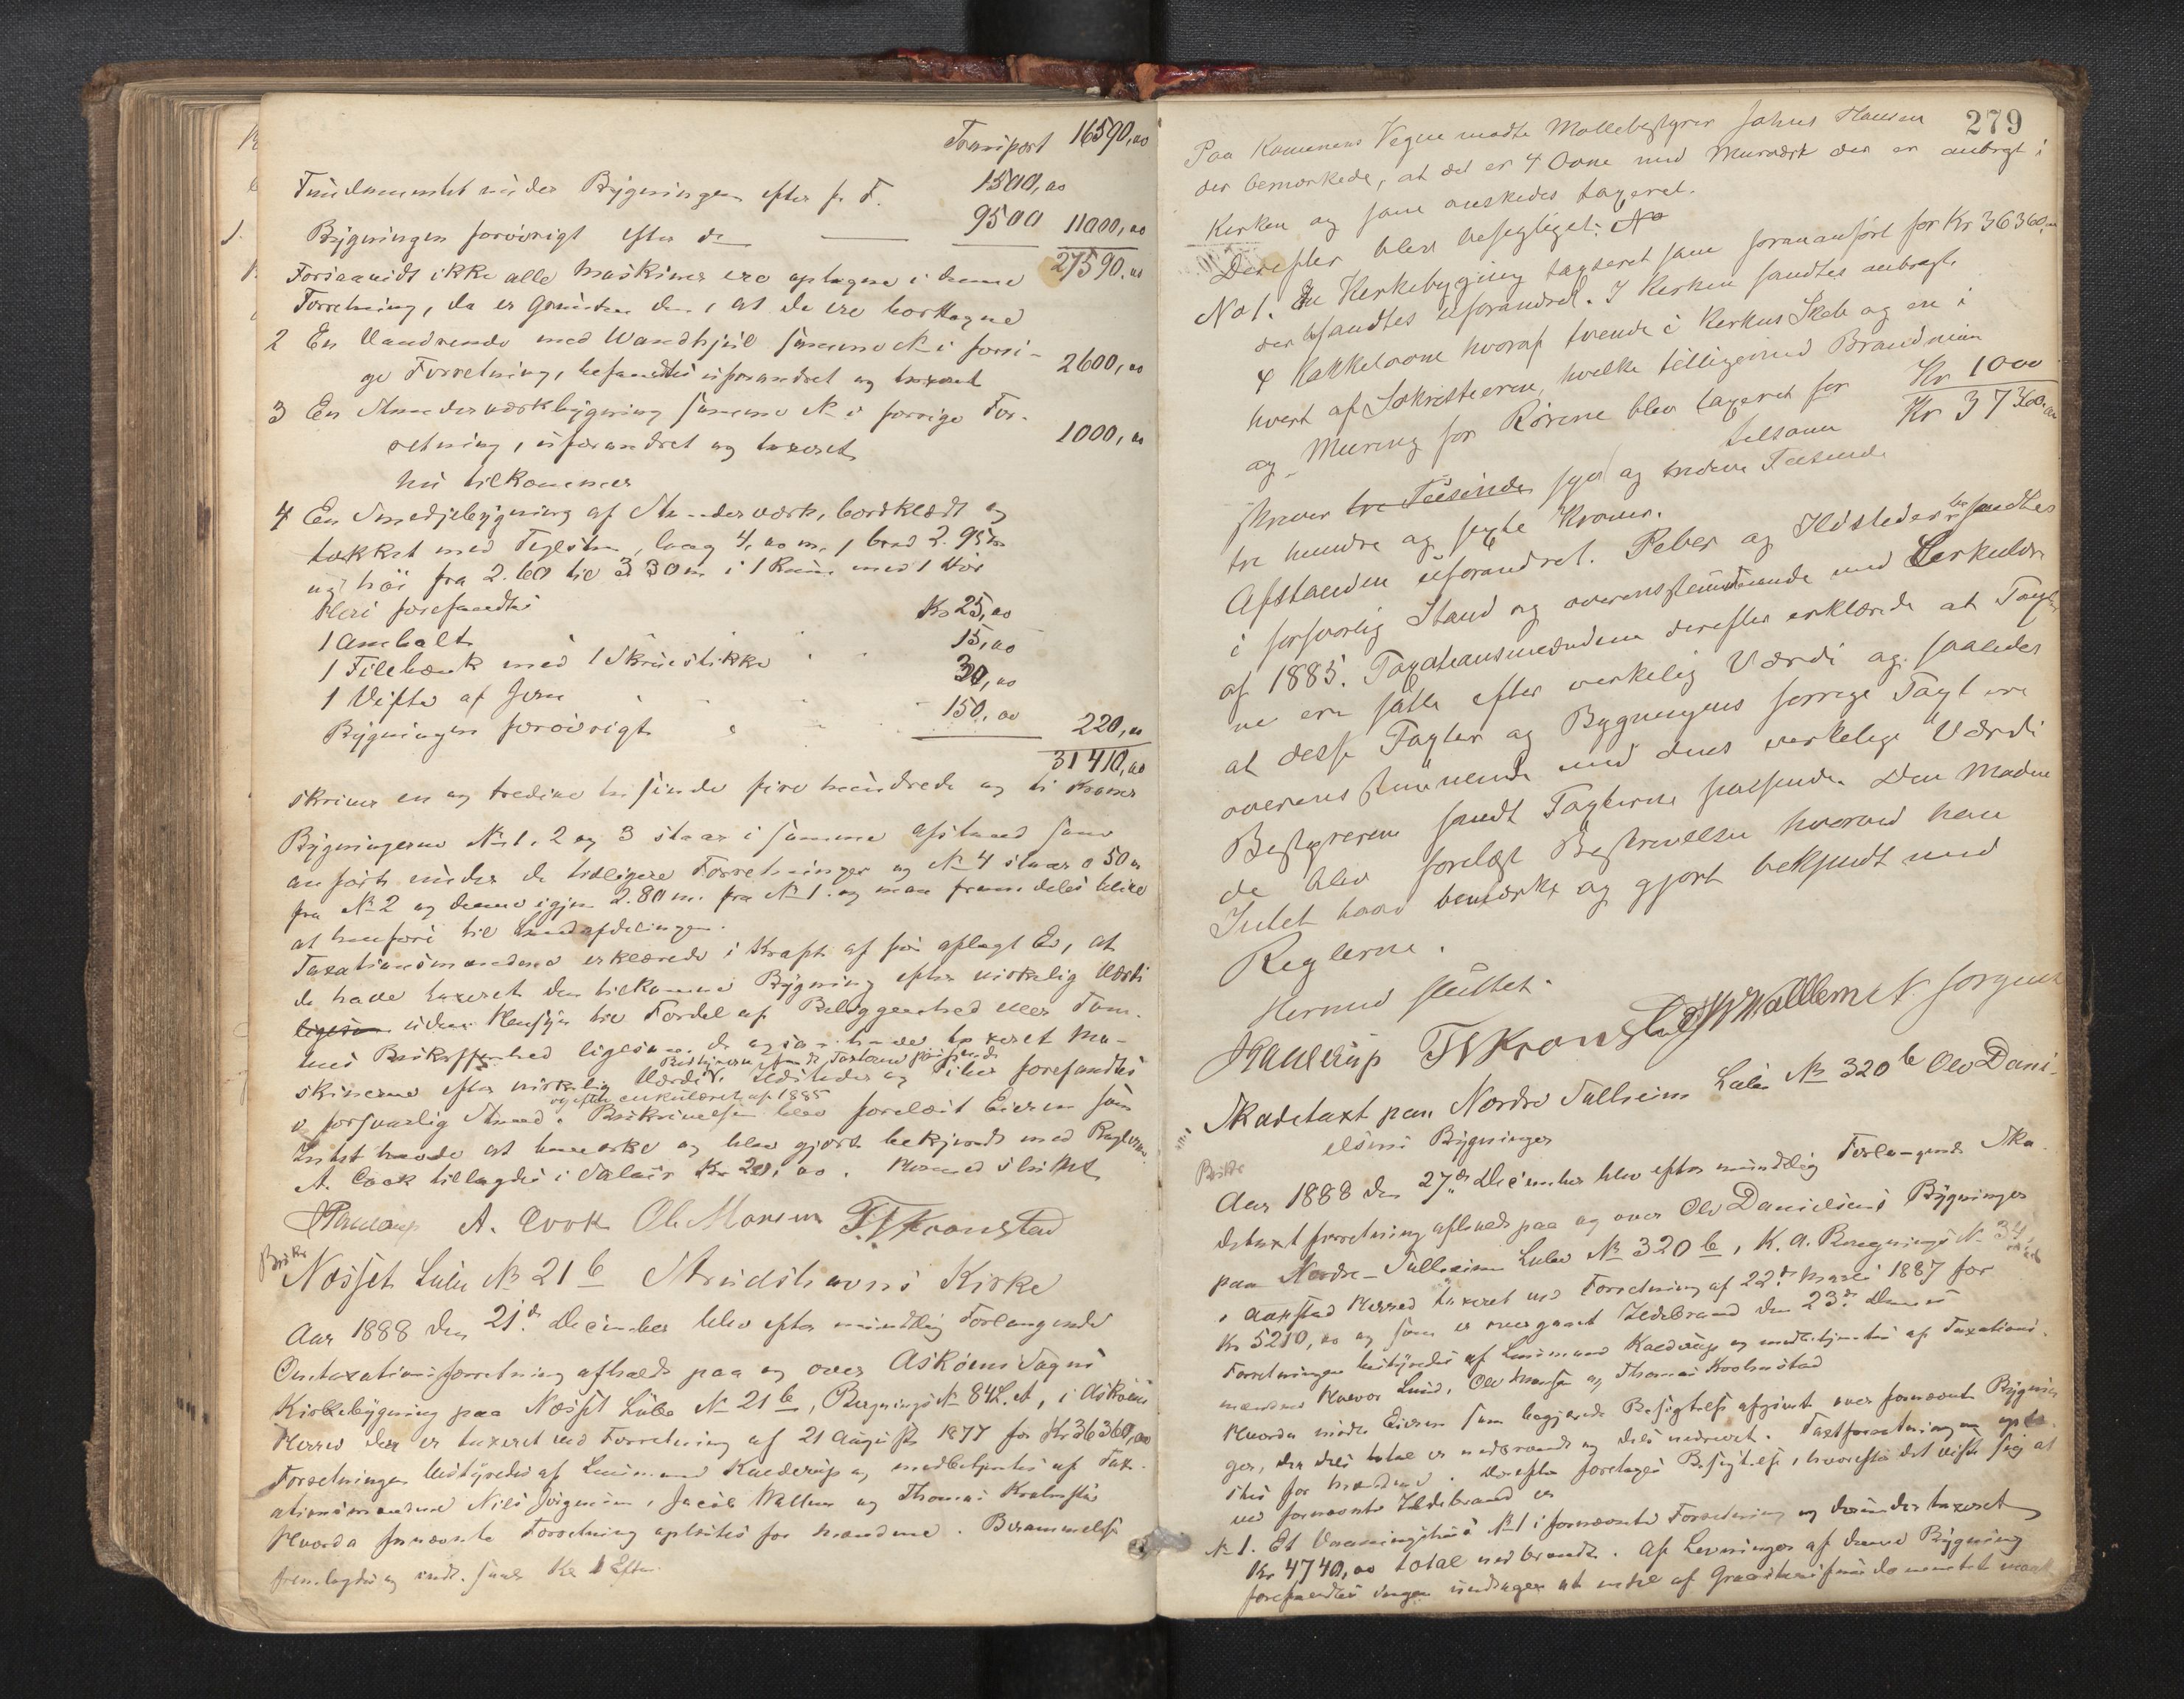 Transport 16590,00
Fundamentet under Bygningen efter pr F. 1500,00
Bygningen forøvrigt efter do 9500 11000,00
Forsaavidt ikke alle Maskiner ere optagne i denne 27590,00
Forretning, da er Grunden den, at de ere borttagne
2 En Vandrende med Vandhjul samme No i forri-
ge Forretning, befandtes uforandret og taxeret 2600,00
3 En Stenderværksbygning samme No i forrige For-
retning, uforandret og taxeret 1000,00
Nu tilkommer
4 En Smedjebygning af Stenderværk, bordklædt og
takket med Teglsten, lang 4,00 m, bred 2.95 m
og høi fra 2.60 til 3 30 m i 1 Rum med 1 Dør
Heri forefandtes
1 Ambolt Kr 25,00
1 Filebænk med 1 Skruestikke 15,00
1 Vifte af Jern 30,00
Bygningen forøvrigt 150,00 220,00
31410,00
skriver en og tredive tusinde fire hundrede og ti Kroner
Bygningerne No 1, 2 og 3 staar i samme Afstand som
anført under de tidligere Forretninger og No 4 staar 0 50 m
fra No 2 og denne igjen 2.80 m. fra No 1. og maa fremdeles blive
at henføre til Landafdelingen.
Taxationsmændene erklærede i Kraft af før aflagt Ed, at
de have taxeret den tilkomne Bygning efter virkelig Værdi
ligesom uden Hensyn til Fordel af Beliggenhed eller Tom-
tens Beskaffenhed ligesom de ogsaa havde taxeret Ma-
Bestyreren fandt Taxterne passende
skinerne efter virkelig Værdi. Ildsteder og Piber forefandtes
og efter Cirkulæret af 1885
i forsvarlig Stand. Beskrivelsen blev forelæst Eieren som
Intet havde at bemærke og blev gjort bekjendt med Reglerne.
A. Cook tillagdes i Salair Kr 20,00. Hermed sluttet
A. Cook Ole Monsen T. Kronstad
Beskr
Næsset Løbe No 21 b Strudshavns Kirke
Aar 1888 den 21de December blev efter mundtlig Forlangende
Omtaxationsforretning afholdt paa og over Askøens Sogns
Kirkebygning paa Næsset Løbe No 21 b, Bygnings No 84 L. A, i Askøens
Herred der er taxeret ved Forretning af 21 August 1877 for Kr 36360,00
Forretningen bestyredes af Lensmand Kalderup og medbetjentes af Tax-
ationsmændene Nils Jørgensen, Jacob Wallem og Thomas Krohnstad
Hvorda fornævnte Forretning oplæstes for Mændene. Berammelse
fremlagdes og indt. saal. Kr 1 Efter.
279
Paa Kommunens Vegne mødte Møllebestyrer Johns Hansen
der bemærkede, at det er 4 Ovne med Murværk der er anbragt i
Kirken og som ønskedes taxeret.
Derefter blev besigtiget: No
No 1. En Kirkebygning taxseret som foranført for Kr 36360,00
der befandtes uforandred. I Kirken fandtes anbragt
4 Kakkelovne hvoraf tvende i Kirkens Skib og en i
hvert af Sakristierne, hvilke tilligemed Brandmur
og Muring for Rørene blev taxeret for Kr 1000
tilsam Kr 37360,00
skriver tre Tusinde syv og tredive Tusinde
tre hundre og sexti Kroner.
Afstanden uforandret. Peber og Ildsteder befandtes
i forsvarlig Stand og overensstemmende med Cirkulære
af 1885. Taxationsmændene derefter erklærede at Taxter-
ne ere satte efter verkelig Værdi og saaledes
at desse Taxter og Bygningens forrige Taxt ere
overensstemmende med dens verkelige Værdi
Bestyreren fandt Taxterne passende. Den Mødende
de blev forelæst Beskrivelsen hvorved han
Intet havd bemærke og gjort bekjendt med
Reglerne.
Hermed sluttet.
Kalderup T. Kronstad J W Wallem N Jørgensen
Skadetaxt paa Nordre Tulleim Løbe No 320 b Ole Dani-
elsens Bygninger
Beskr
Aar 1888 den 27de December blev efter mundtlig Forlangende Ska-
detaxtforretning afholdt paa og over Ole Danielsens Bygninger
paa Nordre-Tulleim Løbe No 320 b, K. A. Bygnings No 34,
i Herred taxeret ved Forretning af 22de Marts 1887 for
Kr 5210,00 og som er overgaaet Ildebrand den 23de dennes
Forretningen bestyredes af Lensmand Kalderup og medbetjentes af Taxations-
mændene Halvor Lund, Ole Monsen og Thomas Krohnstad
Hvorda mødte Eieren som begjærede Besigtelse afgivet over fornævnte Bygnin-
ger, der dels total er nedbrændt og dels nedrevet. Taxtforretningen oplæ-
stes for Mændene. Derefter foretoges Besigtelse, hvorefter det viste sig at
ved fornævnte Ildebrand er
No 1. Et Vaaningshus No 1 i fornævnte Forretning og derunder taxeret
Kr 4740,00 total nedbrændt. Af Levninger af denne Bygning
forefandtes ingen undtagen at endel af Graastensfundamentet